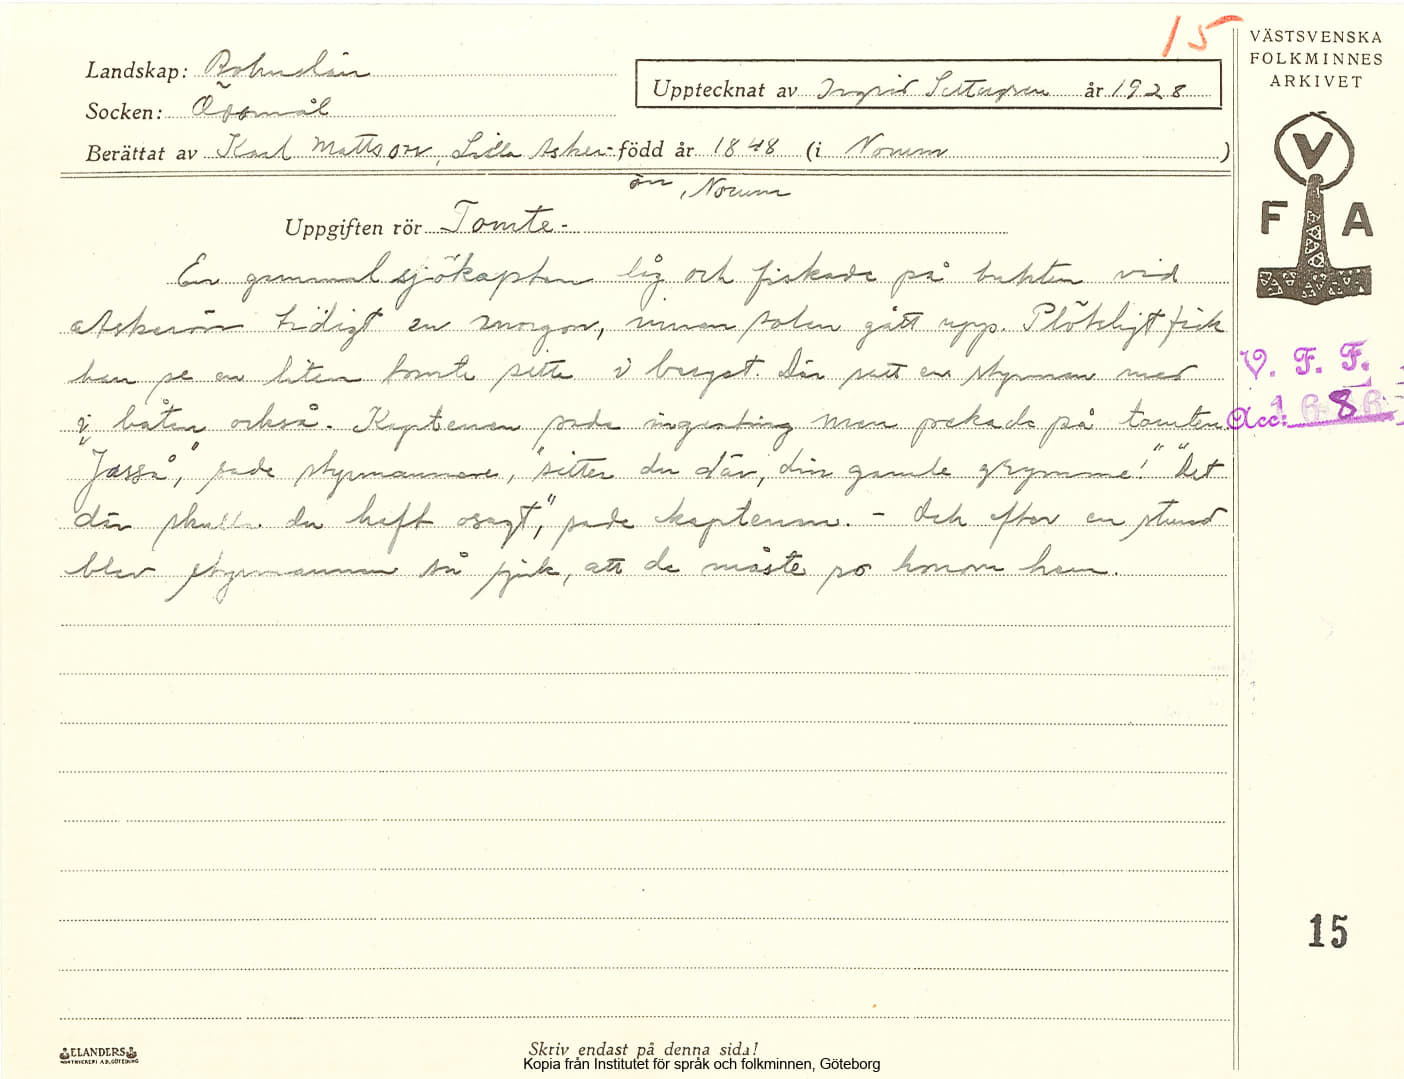 15
VÄSTSVENSKA
FOLKMINNES
ARKIVET
Landskap: Bohuslän
Upptecknat av Ingrid år 1928
Socken: Ödsmål
Berättat av Karl Mattson, Lilla Asker- född år 1848 (i Norum )
ön, Norum
V
F A
Uppgiften rör Tomte-
En gammal sjökapten låg och fiskade på bukten vid
Askerön tidigt en morgon, innan solen gått upp. Plötsligt fick
han se en liten tomte sitta i Där satt en styrman med
i båten också. Kaptenen sade ingenting men pekade på tomten.
"Jasså", sade styrmannen, "sitter du där, din gamle grymme!" "Det
där skulle du haft osagt", sade kaptenen. - Och efter en stund
blev styrmannen så sjuk, att de måste ro honom hem.
V. F. F.
Acc:
15
ELANDERS
Skriv endast på denna sida!
Kopia från Institutet för språk och folkminnen, Göteborg